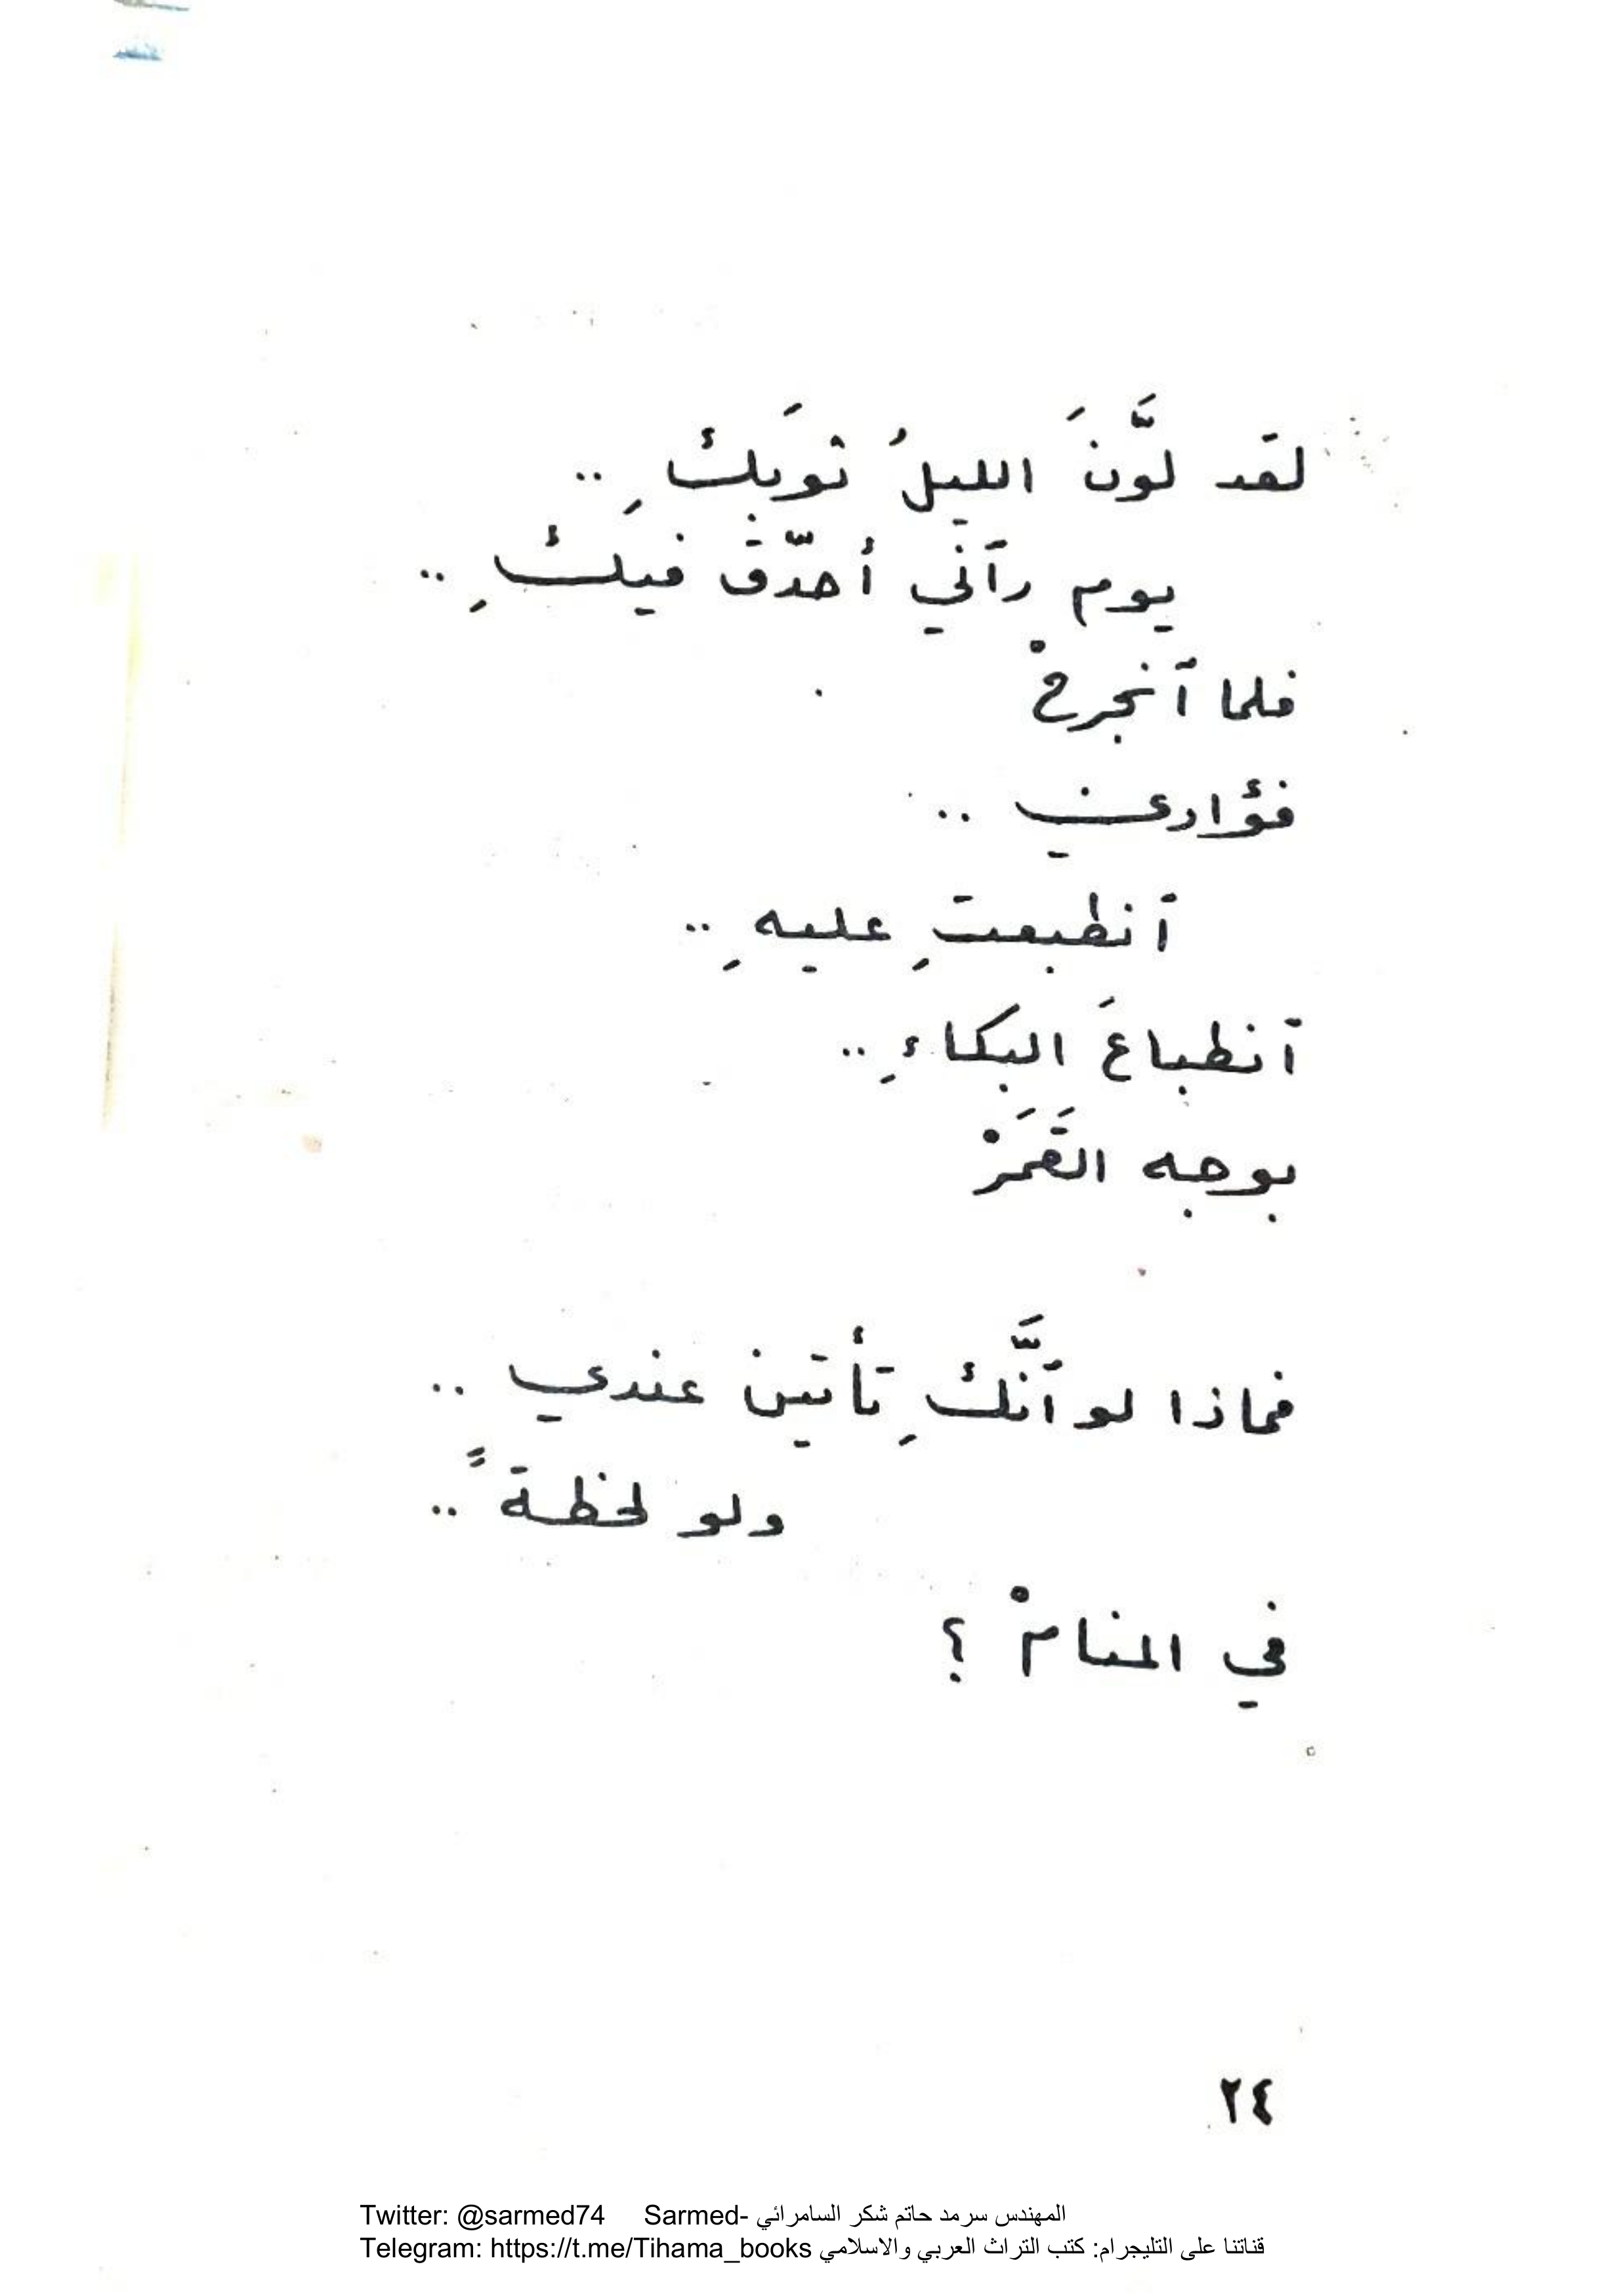 لقد لوَّنَ الليلُ ثوبَكِ ..
يوم رآني أحدّق فيكِ ..
فلما آنجرحْ
فؤادي ..
آنطبعتِ عليهِ ..
آنطباعَ البكاءِ ..
بوجه القَمَرْ
فماذا لو آنَّكِ تأتين عندي ..
ولو لحظةً ..
في المنامْ ؟
٢٤
Twitter: @sarmed74 Sarmed- المهندس سرمد حاتم شكر السامرائي
Telegram: https://t.me/Tihama_books قناتنا على التليجرام: كتب التراث العربي والاسلامي